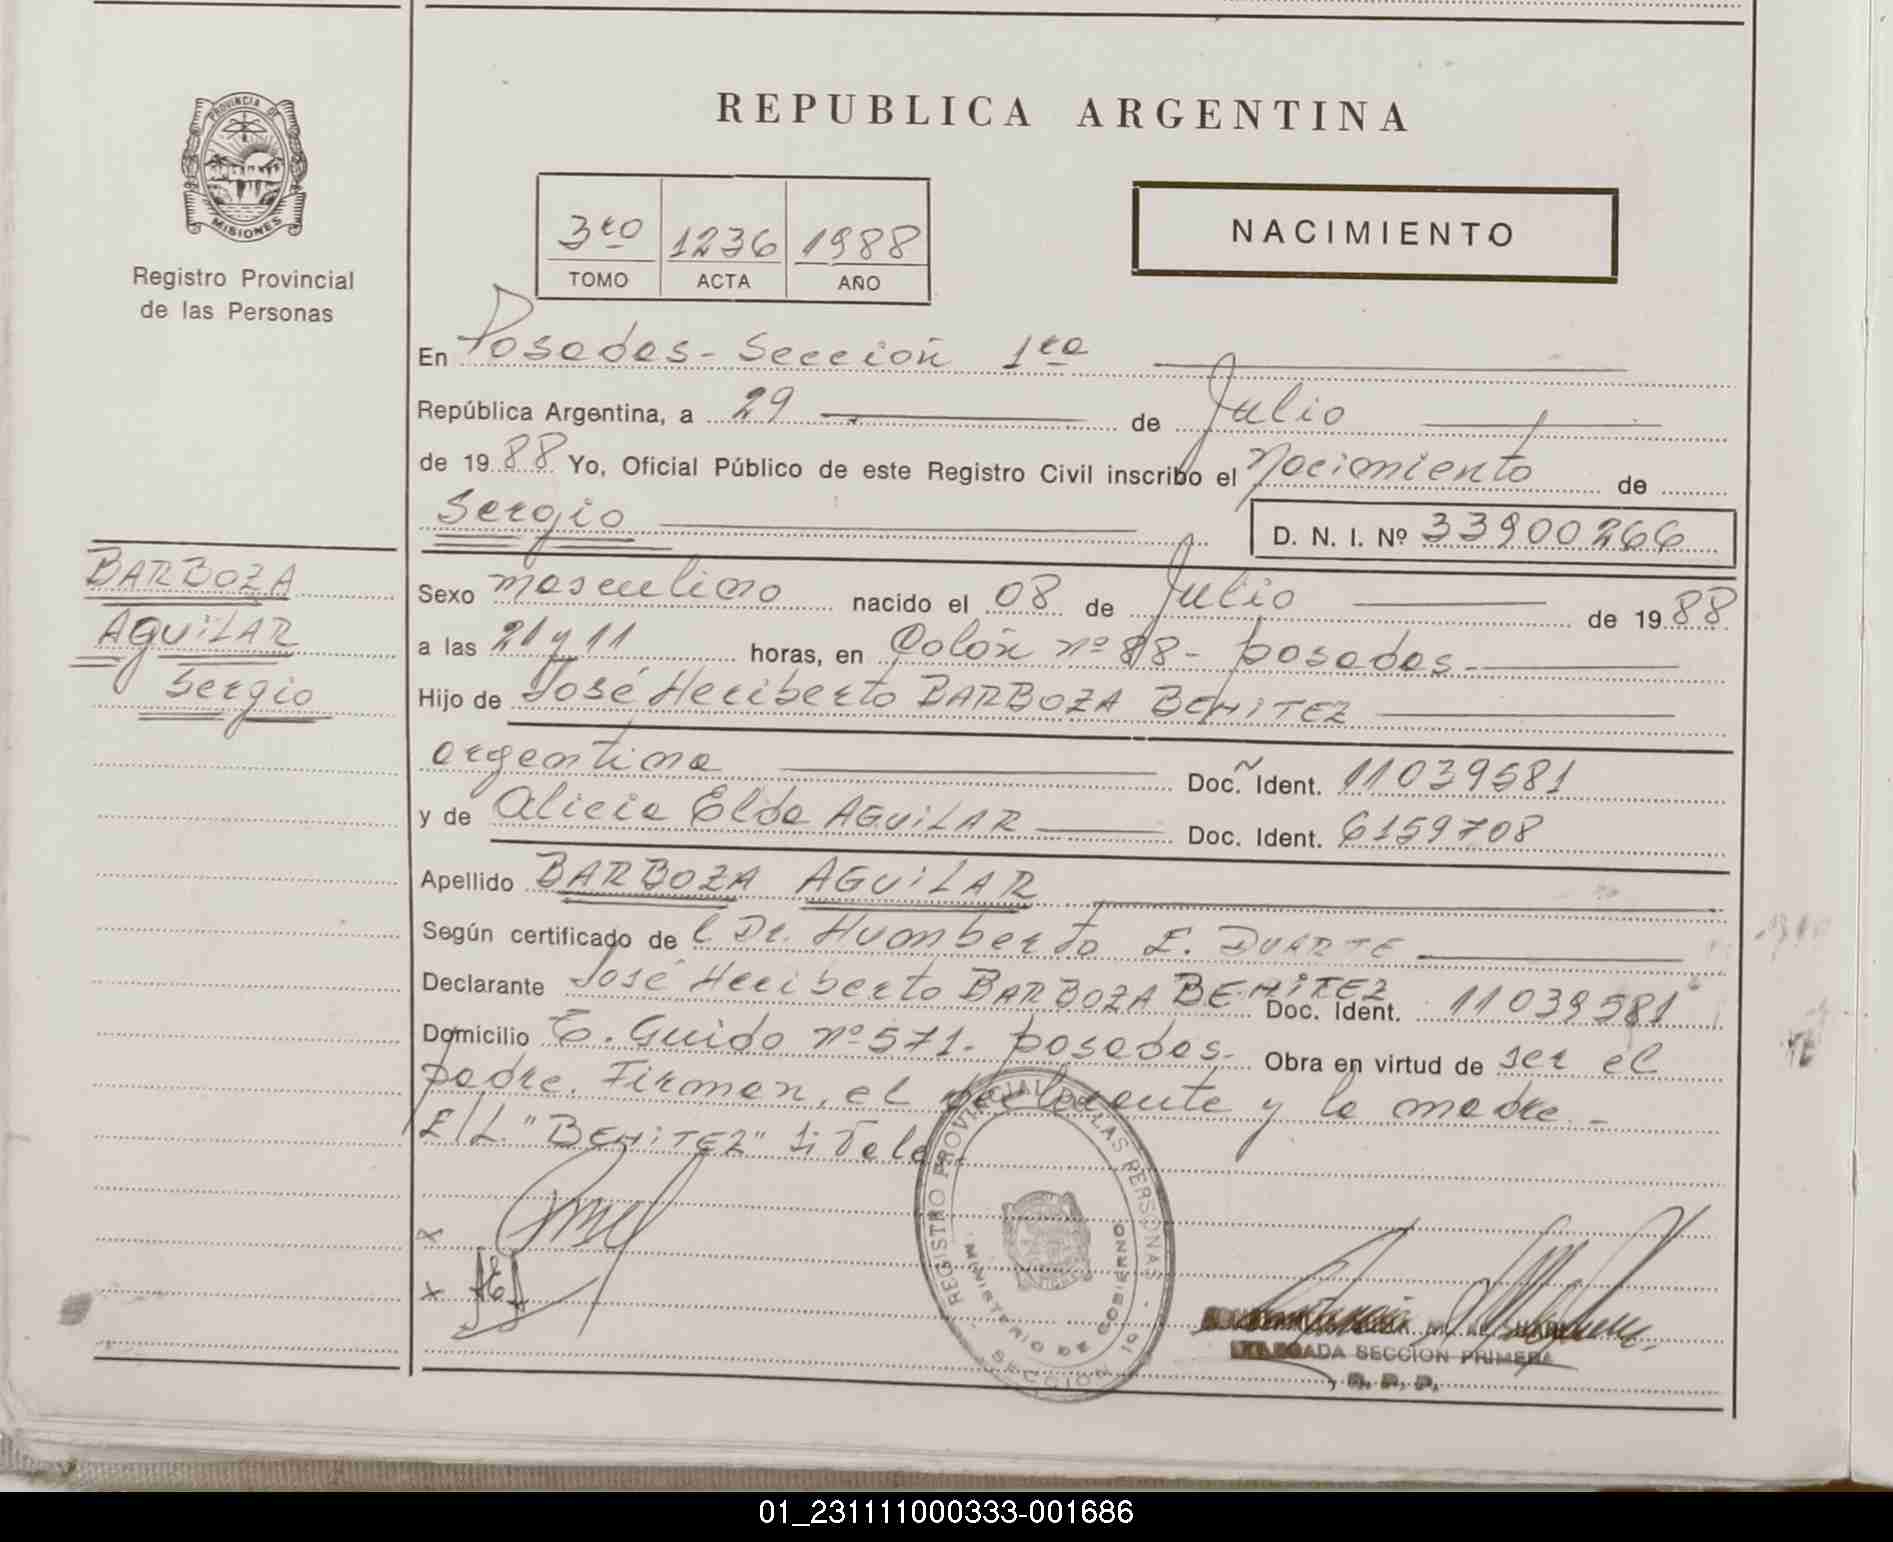 REPUBLICA ARGENTINA
PROVINCIA DE
MISIONES
Registro Provincial
de las Personas
3ro 1236 1988
TOMO ACTA AÑO
NACIMIENTO
En Posadas - Sección 1ra
República Argentina, a 29 de Julio
de 1988 Yo, Oficial Público de este Registro Civil inscribo el Nacimiento de
Sergio D. N. I. Nº 33900266
BARBOZA
AGUILAR
Sergio
Sexo masculino nacido el 08 de Julio de 1988
a las 21 y 11 horas, en Colón nº 88 - posadas.
Hijo de José Heriberto BARBOZA BENITEZ
argentina Doc. Ident. 11039581
y de Alicia Elda AGUILAR Doc. Ident. 6159708
Apellido BARBOZA AGUILAR
Según certificado de l Dr. Humberto E. DUARTE
Declarante José Heriberto BARBOZA BENITEZ Doc. Ident. 11039581
Domicilio T. Guido nº 571 - posadas. Obra en virtud de ser el
padre. Firman, el declarante y la madre.-
E/L. "BENITEZ" si vale.
REGISTRO PROVINCIAL DE LAS PERSONAS
MINISTERIO DE GOBIERNO
SECCION 01
DELEGADA SECCION PRIMERA
R. P. P.
01_231111000333-001686